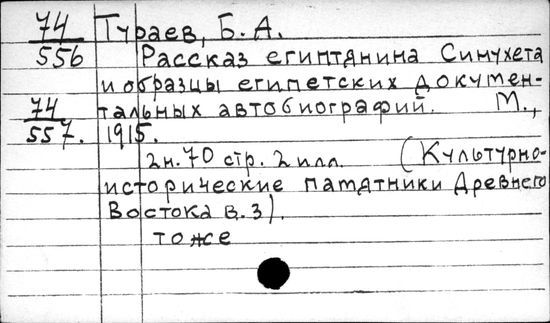 74 Тураев, Б. А.
556 Рассказ египтянина Синухета
и образцы египетских докумен-
74 тальных автобиографий. М.,
557. 1915.
2н. 70 стр. 2 илл. (Культурно-
исторические памятники Древнего
Востока в. 3).
то же